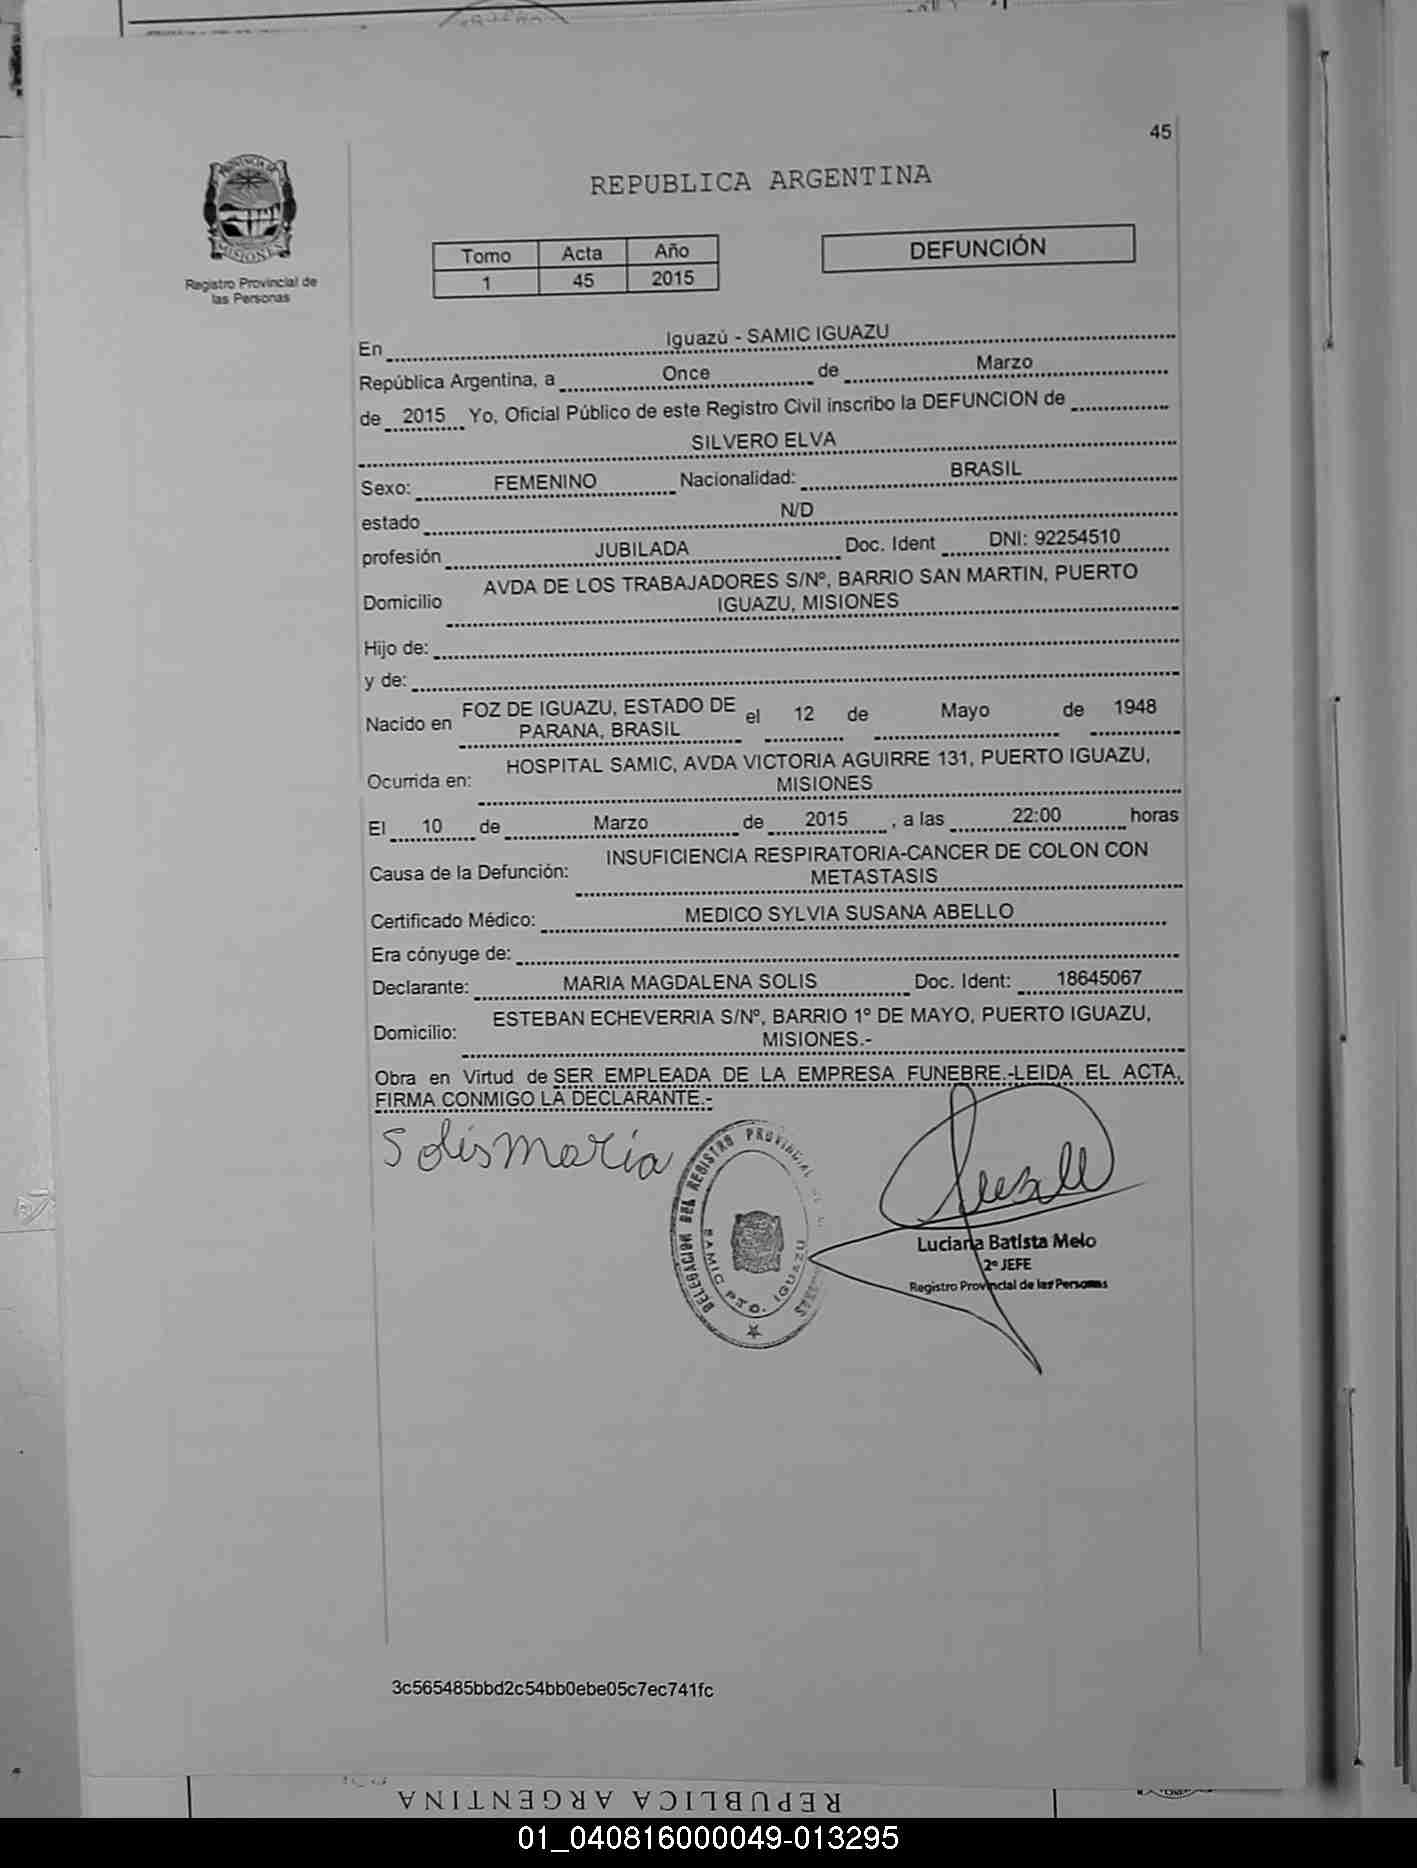 45
PROVINCIA DE
MISIONES
Registro Provincial de
las Personas
REPUBLICA ARGENTINA
Tomo Acta Año
1 45 2015
DEFUNCIÓN
En Iguazú - SAMIC IGUAZU
República Argentina, a Once de Marzo
de 2015 Yo, Oficial Público de este Registro Civil inscribo la DEFUNCION de
SILVERO ELVA
Sexo: FEMENINO Nacionalidad: BRASIL
estado N/D
profesión JUBILADA Doc. Ident DNI: 92254510
Domicilio AVDA DE LOS TRABAJADORES S/Nº, BARRIO SAN MARTIN, PUERTO
IGUAZU, MISIONES
Hijo de:
y de:
Nacido en FOZ DE IGUAZU, ESTADO DE
PARANA, BRASIL el 12 de Mayo de 1948
Ocurrida en: HOSPITAL SAMIC, AVDA VICTORIA AGUIRRE 131, PUERTO IGUAZU,
MISIONES
El 10 de Marzo de 2015, a las 22:00 horas
Causa de la Defunción: INSUFICIENCIA RESPIRATORIA-CANCER DE COLON CON
METASTASIS
Certificado Médico: MEDICO SYLVIA SUSANA ABELLO
Era cónyuge de:
Declarante: MARIA MAGDALENA SOLIS Doc. Ident: 18645067
Domicilio: ESTEBAN ECHEVERRIA S/Nº, BARRIO 1º DE MAYO, PUERTO IGUAZU,
MISIONES.-
Obra en Virtud de SER EMPLEADA DE LA EMPRESA FUNEBRE.-LEIDA EL ACTA,
FIRMA CONMIGO LA DECLARANTE.-
Solis Maria
DELEGACION DEL REGISTRO PROVINCIAL DE
SAMIC PTO. IGUAZU
Luciana Batista Melo
2º JEFE
Registro Provincial de las Personas
3c565485bbd2c54bb0ebe05c7ec741fc
REPUBLICA ARGENTINA
01_040816000049-013295